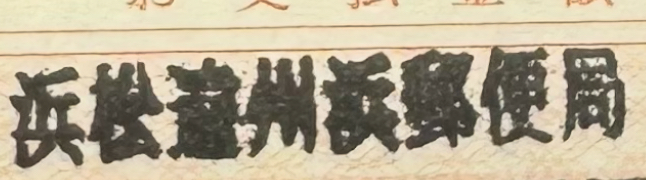 浜松遠州浜郵便局